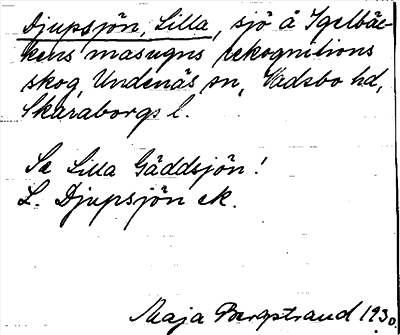 Djupsjön, Lilla, sjö å Igelbäc-
kens masugns rekognitions
skog, Undenäs sn, Vadsbo hd,
Skaraborgs l.
Se Lilla Gäddsjön!
L. Djupsjön ek.
Maja Bergstrand 1930